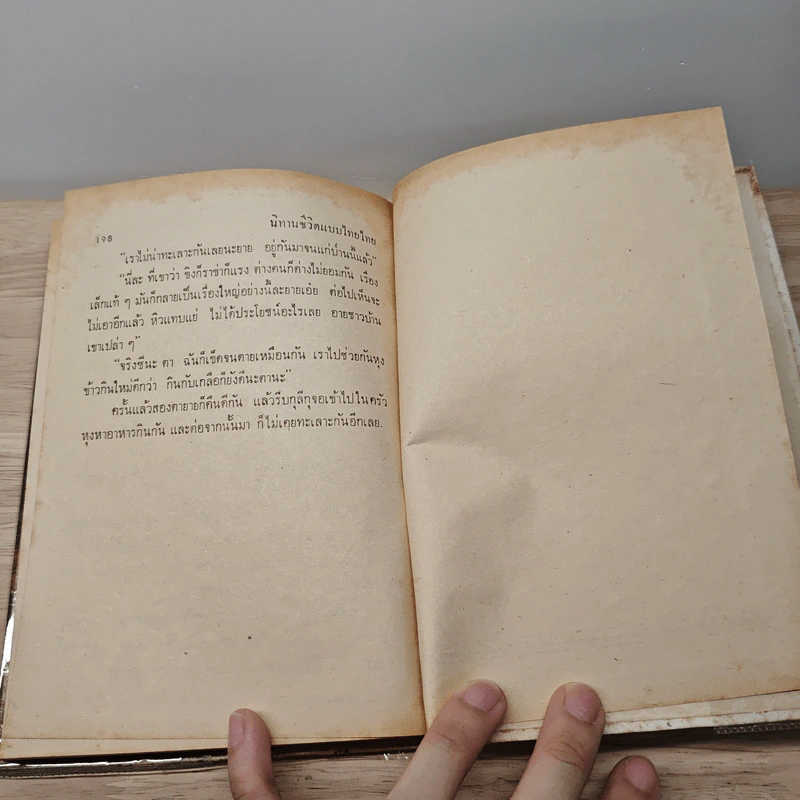 ๑๙๘
นิทานชีวิตแบบไทยไทย
“เราไม่น่าทะเลาะกันเลยนะยาย อยู่กันมาจนแก่ป่านนี้แล้ว”
“นี่ละ ที่เขาว่า ขิงก็ราข่าก็แรง ต่างคนก็ต่างไม่ยอมกัน เรื่อง
เล็กแท้ ๆ มันก็กลายเป็นเรื่องใหญ่อย่างนี้ละยายเอ๋ย ต่อไปเห็นจะ
ไม่เอาอีกแล้ว หิวแทบแย่ ไม่ได้ประโยชน์อะไรเลย อายชาวบ้าน
เขาเปล่า ๆ”
“จริงซีนะ ตา ฉันก็เข็ดจนตายเหมือนกัน เราไปช่วยกันหุง
ข้าวกินใหม่ดีกว่า กินกับเกลือก็ยังดีนะตานะ”
ครั้นแล้วสองตายายก็คืนดีกัน แล้วรีบกุลีกุจอเข้าไปในครัว
หุงหาอาหารกินกัน และต่อจากนั้นมา ก็ไม่เคยทะเลาะกันอีกเลย.